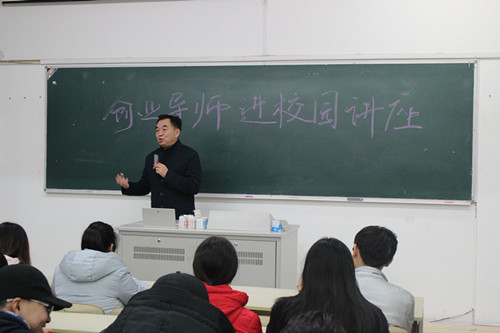 创业导师进校园讲座